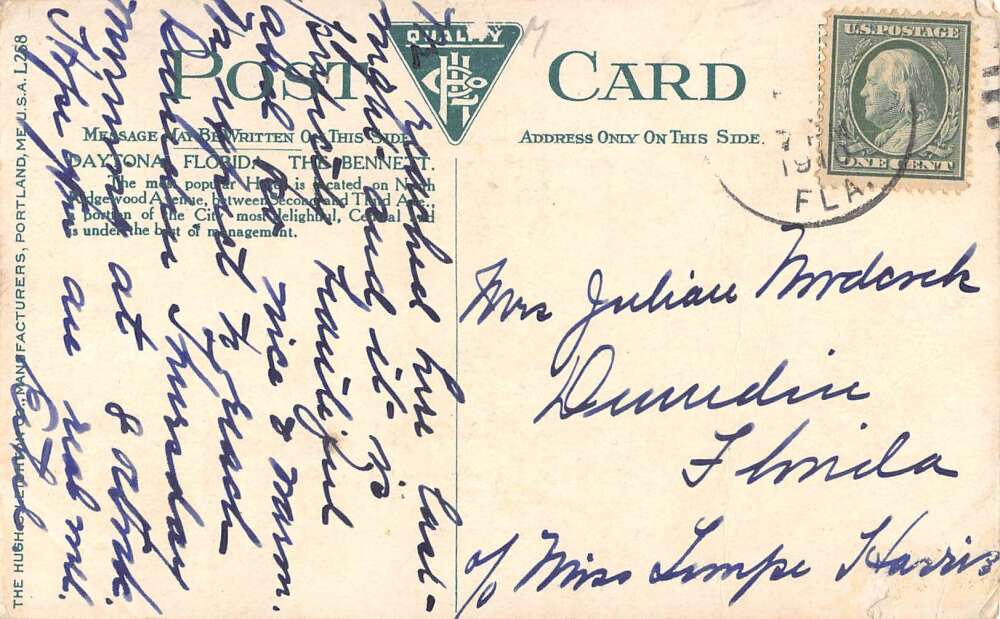 THE HUGH C. LEIGHTON CO., MANUFACTURERS, PORTLAND, ME. U.S.A. L258
POST CARD
QUALITY
MESSAGE MAY BE WRITTEN ON THIS SIDE
ADDRESS ONLY ON THIS SIDE.
DAYTONA, FLORIDA, THE BENNETT.
The most popular Hotel is located, on North
Ridgewood Avenue, between Second and Third Ave.,
portion of the City most delightful, Central and
is under the best of management.
U.S. POSTAGE
ONE CENT
FLA.
Reached here last
night and it is
beautiful
nice & warm.
expect to reach
Thursday
morning at 8 o'clock.
Hope you are real well.
Mrs Julian Nordcock
Dunedin
Florida
c/o Miss Harris